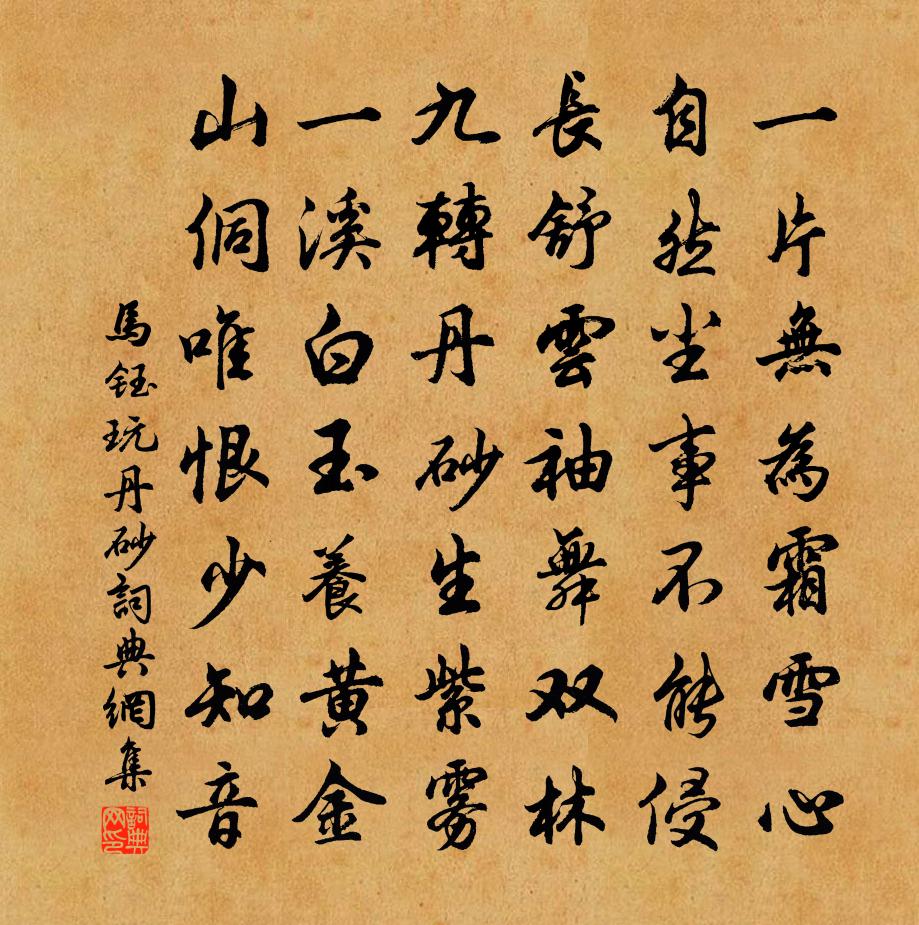 一片無為霜雪心
自然尘事不能侵
長舒雲袖舞双林
九轉丹砂生紫雾
一溪白玉養黄金
山侗唯恨少知音
馬鈺玩丹砂詞典網集
詞典网印